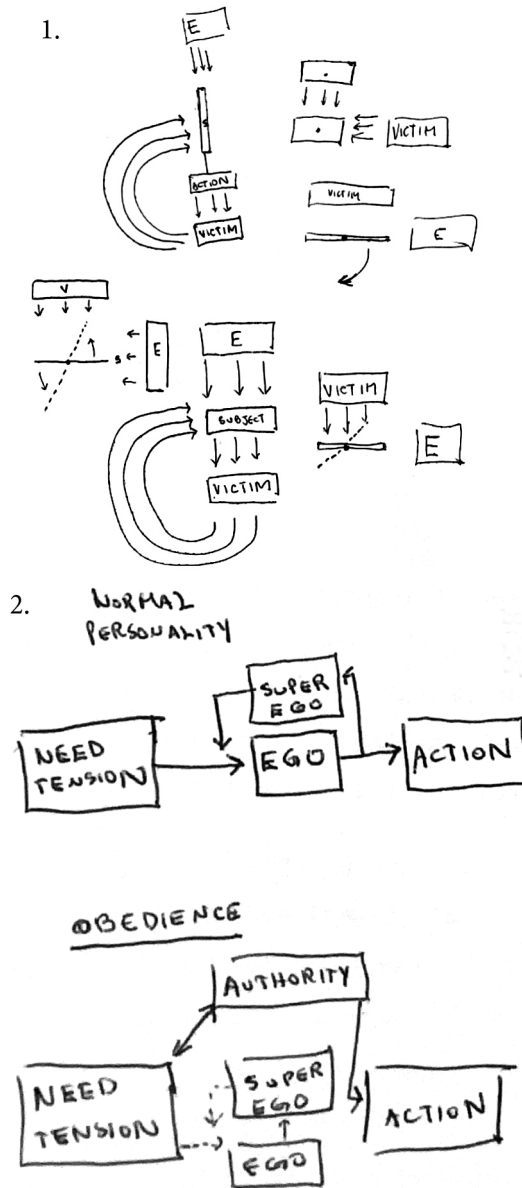 1.
E
S
ACTION
VICTIM
VICTIM
VICTIM
E
V
S
E
E
SUBJECT
VICTIM
VICTIM
E
2.
NORMAL
PERSONALITY
SUPER
EGO
NEED
TENSION
EGO
ACTION
OBEDIENCE
AUTHORITY
NEED
TENSION
SUPER
EGO
EGO
ACTION